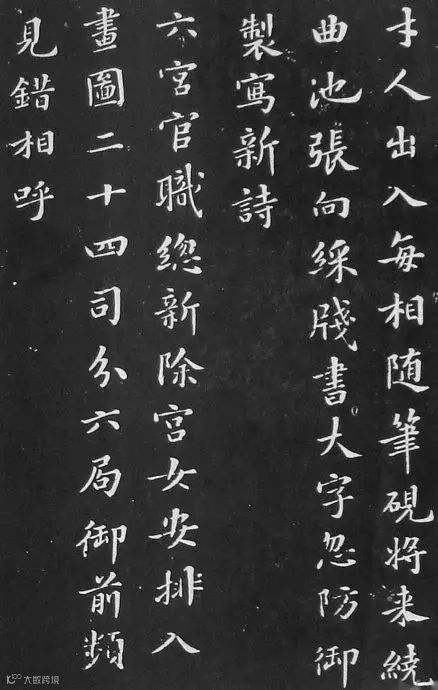 才人出入每相随筆硯将来繞
曲池張向綵牋書大字忽防御
製寫新詩
六宮官職緫新除宮女安排入
畫圖二十四司分六局御前頻
見錯相呼
大数跨境